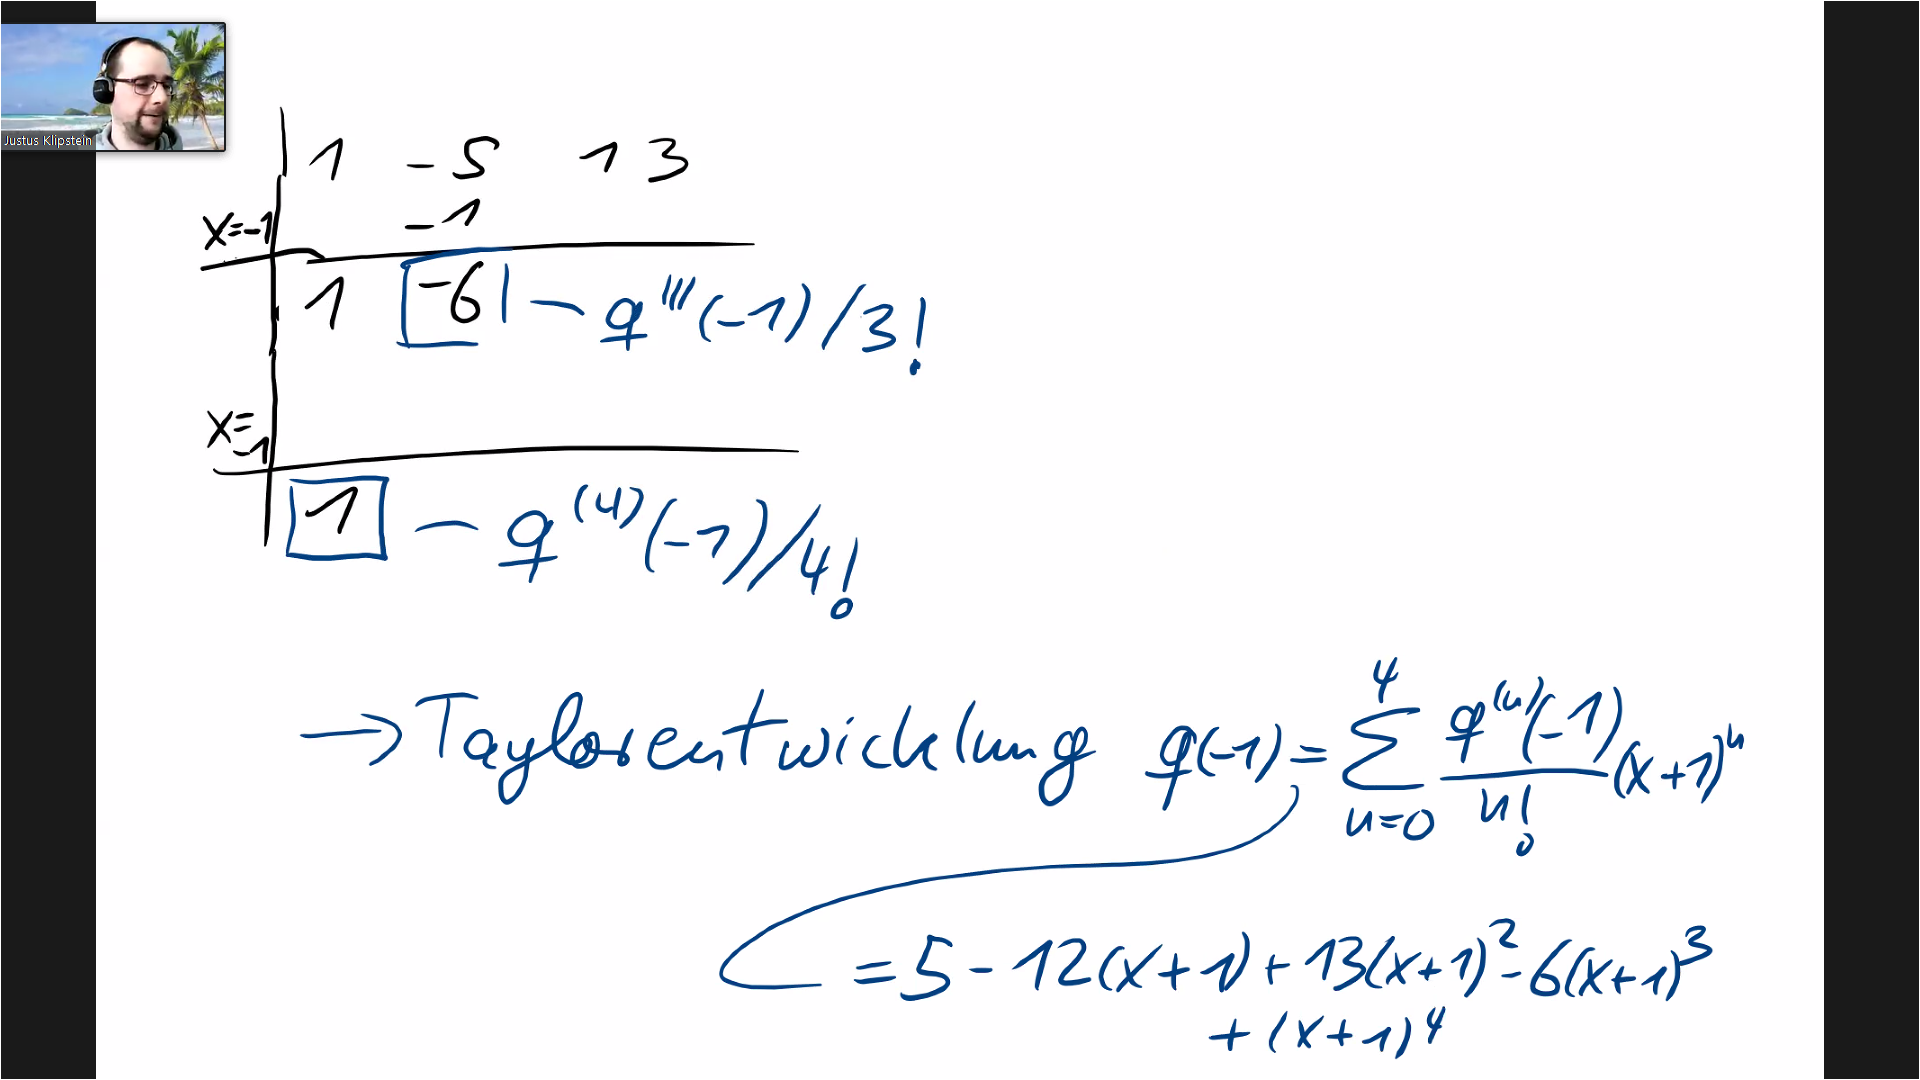 Justus Klipstein
1 -5 13
x=-1 -1
1 -6 - q'''(-1)/3!
x=
-1
1 - q^(4)(-1)/4!
→ Taylorentwicklung q(-1) = ∑_{n=0}^{4} q^(n)(-1)/n! (x+1)^n
= 5 - 12(x+1) + 13(x+1)² - 6(x+1)³
+ (x+1)⁴